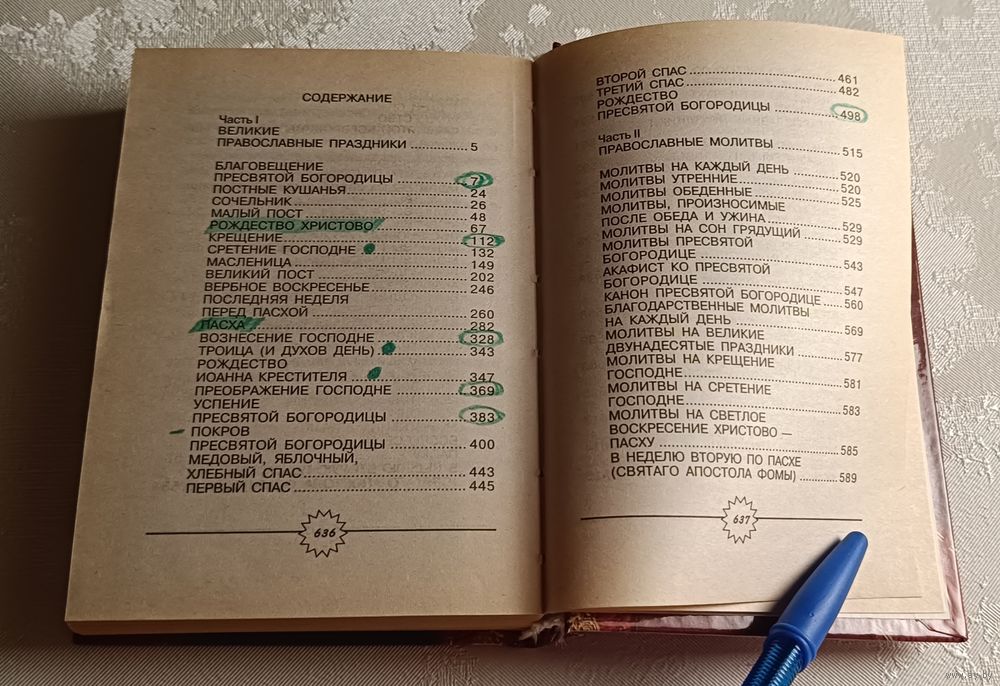 СОДЕРЖАНИЕ
Часть I
ВЕЛИКИЕ
ПРАВОСЛАВНЫЕ ПРАЗДНИКИ ............ 5
БЛАГОВЕЩЕНИЕ
ПРЕСВЯТОЙ БОГОРОДИЦЫ ............ 7
ПОСТНЫЕ КУШАНЬЯ ............ 24
СОЧЕЛЬНИК ............ 26
МАЛЫЙ ПОСТ ............ 48
РОЖДЕСТВО ХРИСТОВО ............ 67
КРЕЩЕНИЕ ............ 112
СРЕТЕНИЕ ГОСПОДНЕ ............ 132
МАСЛЕНИЦА ............ 149
ВЕЛИКИЙ ПОСТ ............ 202
ВЕРБНОЕ ВОСКРЕСЕНЬЕ ............ 246
ПОСЛЕДНЯЯ НЕДЕЛЯ
ПЕРЕД ПАСХОЙ ............ 260
ПАСХА ............ 282
ВОЗНЕСЕНИЕ ГОСПОДНЕ ............ 328
ТРОИЦА (И ДУХОВ ДЕНЬ) ............ 343
РОЖДЕСТВО
ИОАННА КРЕСТИТЕЛЯ ............ 347
ПРЕОБРАЖЕНИЕ ГОСПОДНЕ ............ 369
УСПЕНИЕ
ПРЕСВЯТОЙ БОГОРОДИЦЫ ............ 383
ПОКРОВ
ПРЕСВЯТОЙ БОГОРОДИЦЫ ............ 400
МЕДОВЫЙ, ЯБЛОЧНЫЙ,
ХЛЕБНЫЙ СПАС ............ 443
ПЕРВЫЙ СПАС ............ 445
636
ВТОРОЙ СПАС ............ 461
ТРЕТИЙ СПАС ............ 482
РОЖДЕСТВО
ПРЕСВЯТОЙ БОГОРОДИЦЫ ............ 498
Часть II
ПРАВОСЛАВНЫЕ МОЛИТВЫ ............ 515
МОЛИТВЫ НА КАЖДЫЙ ДЕНЬ ............ 520
МОЛИТВЫ УТРЕННИЕ ............ 520
МОЛИТВЫ ОБЕДЕННЫЕ ............ 525
МОЛИТВЫ, ПРОИЗНОСИМЫЕ
ПОСЛЕ ОБЕДА И УЖИНА ............ 529
МОЛИТВЫ НА СОН ГРЯДУЩИЙ ............ 529
МОЛИТВЫ ПРЕСВЯТОЙ
БОГОРОДИЦЕ ............ 543
АКАФИСТ КО ПРЕСВЯТОЙ
БОГОРОДИЦЕ ............ 547
КАНОН ПРЕСВЯТОЙ БОГОРОДИЦЕ ............ 560
БЛАГОДАРСТВЕННЫЕ МОЛИТВЫ
НА КАЖДЫЙ ДЕНЬ ............ 569
МОЛИТВЫ НА ВЕЛИКИЕ
ДВУНАДЕСЯТЫЕ ПРАЗДНИКИ ............ 577
МОЛИТВЫ НА КРЕЩЕНИЕ
ГОСПОДНЕ ............ 581
МОЛИТВЫ НА СРЕТЕНИЕ
ГОСПОДНЕ ............ 583
МОЛИТВЫ НА СВЕТЛОЕ
ВОСКРЕСЕНИЕ ХРИСТОВО —
ПАСХУ ............ 585
В НЕДЕЛЮ ВТОРУЮ ПО ПАСХЕ
(СВЯТАГО АПОСТОЛА ФОМЫ) ............ 589
637
www.ay.by